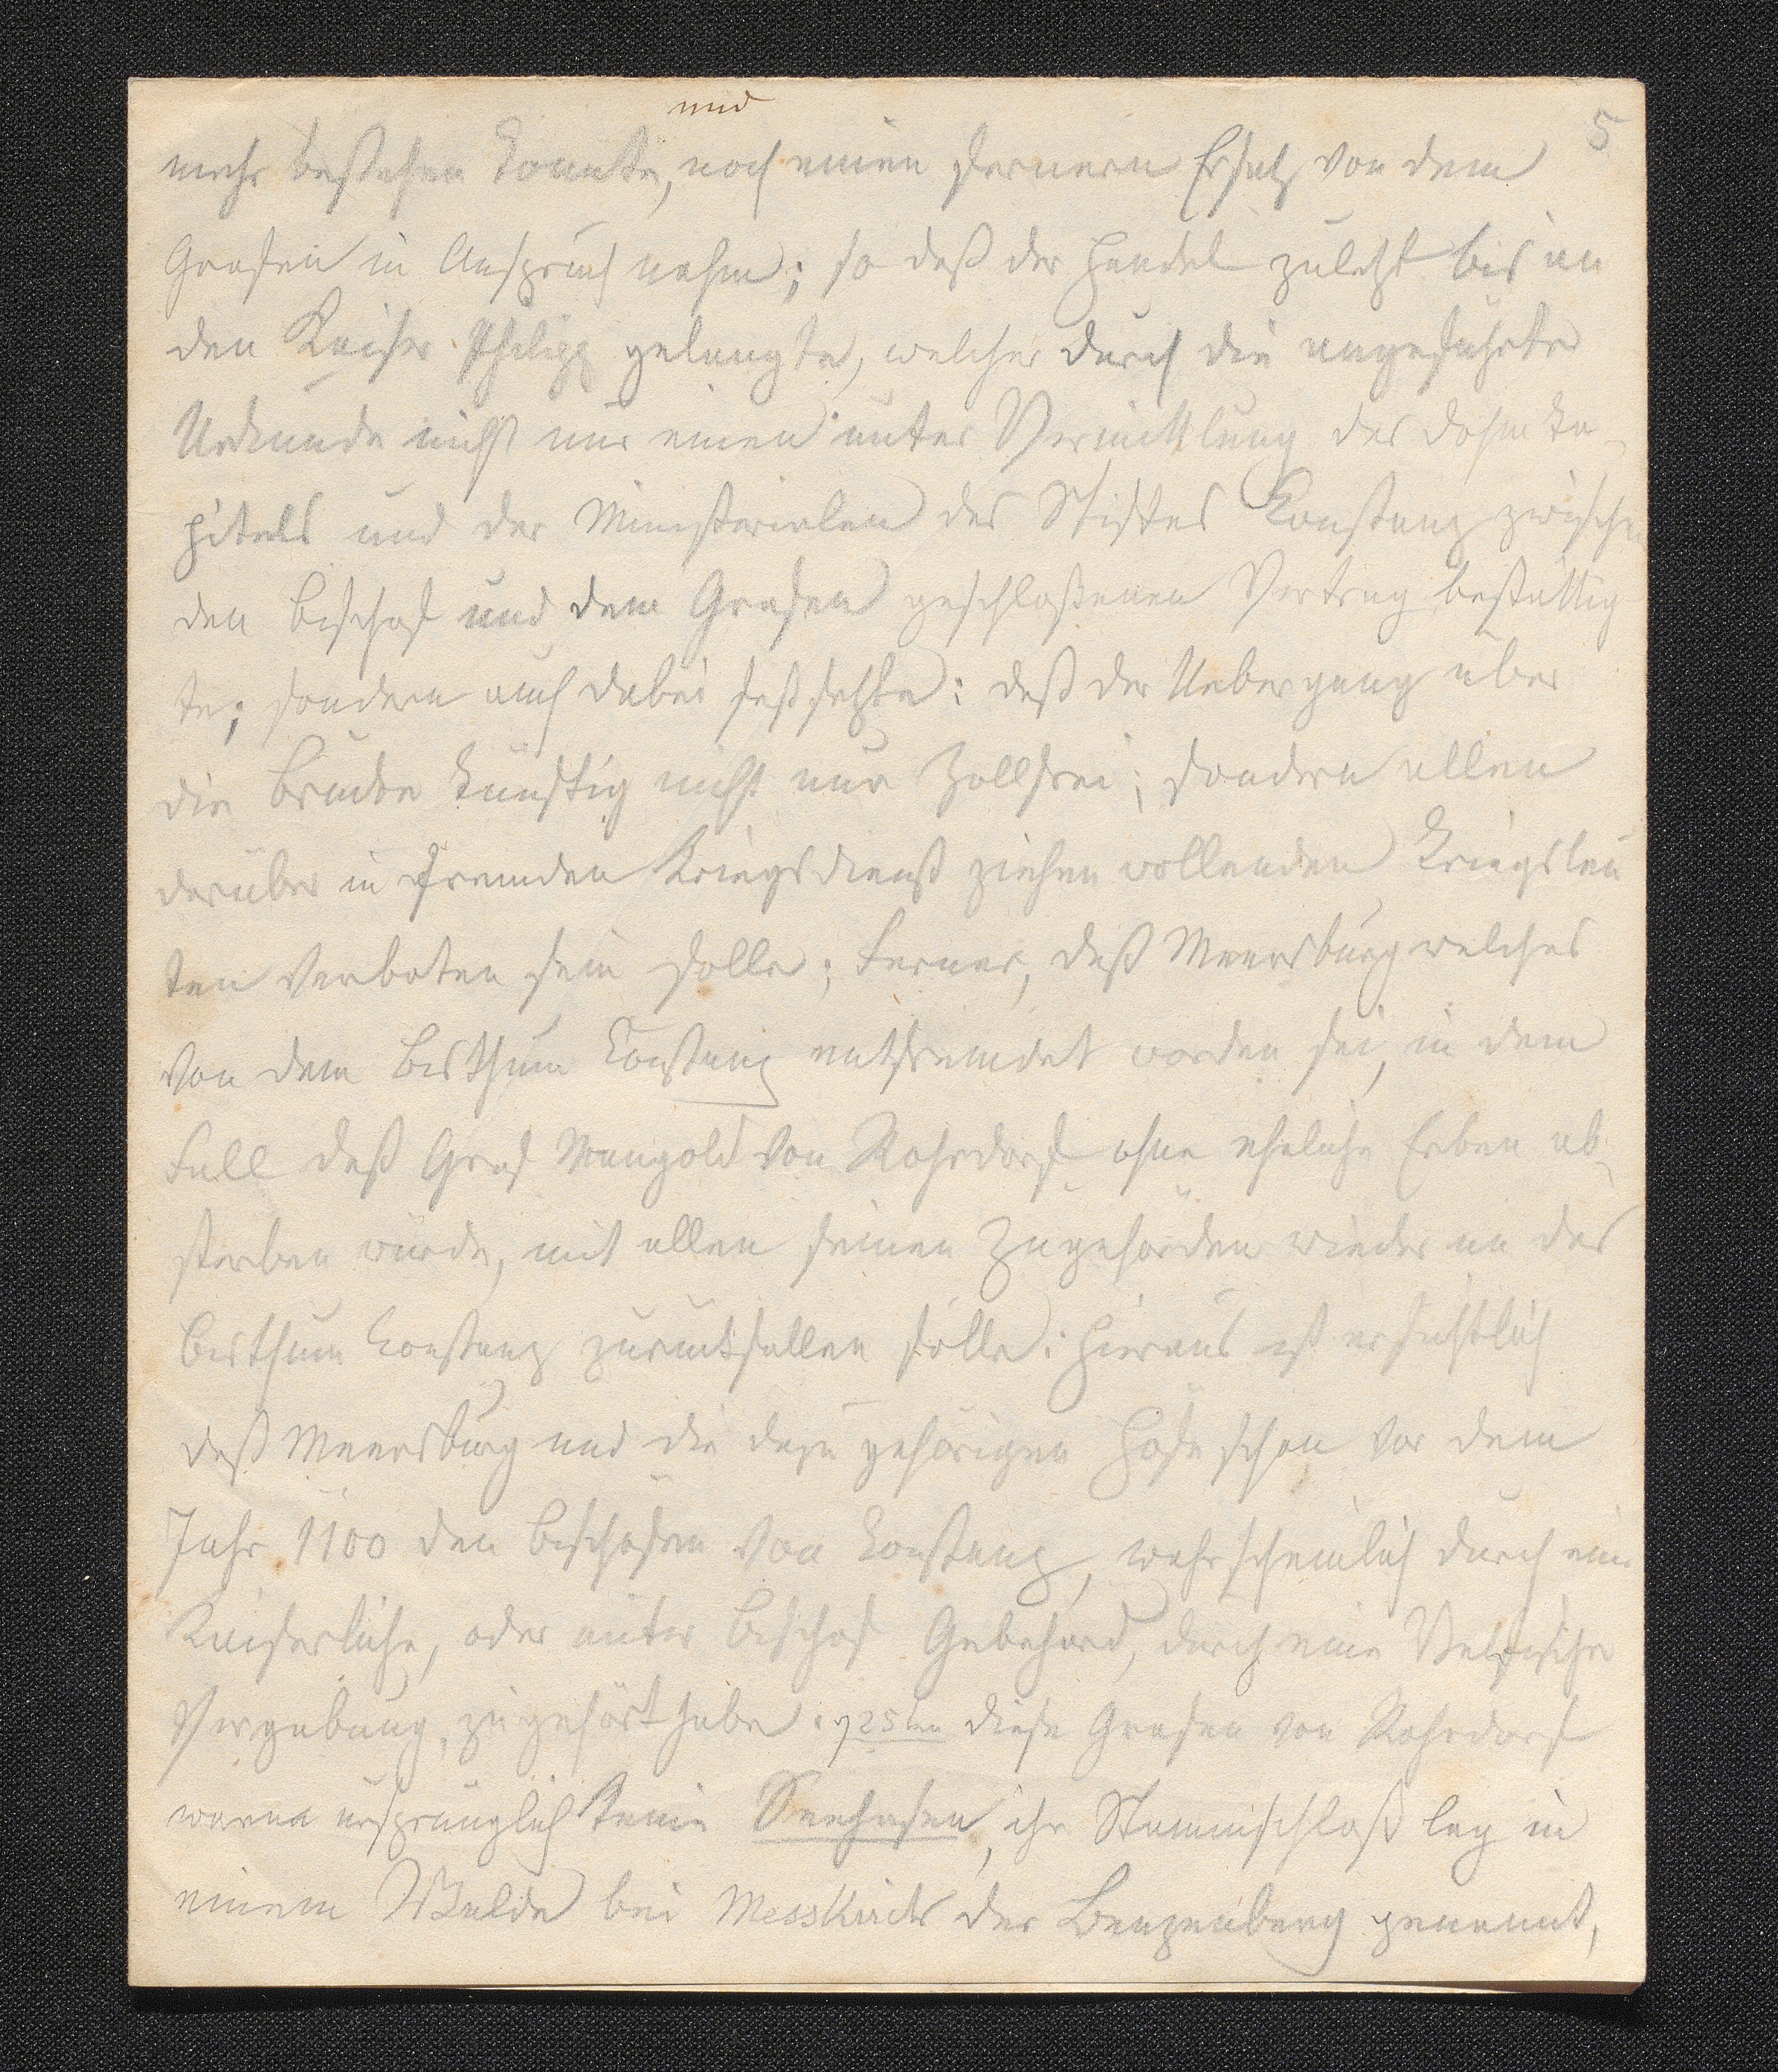 5
und
mehr bestehen konnte, noch einen fernern Ersatz von dem
Grafen in Anspruch nahm; so daß der Handel zuletzt bis an
den Kaiser Philipp gelangte, welcher durch die angeführte
Urkunde nicht nur einen unter Vermittlung des Dohmka-
pitels und der Ministerialen des Stiftes Konstanz zwischen
den Bischof und dem Grafen geschloßenen Vertrag bestättig
te; sondern auch dabei festsetzte: daß der Uebergang über
die Brücke künftig nicht nur Zollfrei; sondern allen
darüber in fremden Kriegsdienst ziehen wollenden Kriegsleu
ten verboten sein solle; Ferner, daß Meersburg welches
von dem Bisthum Konstanz entfremdet worden sei, in dem
Fall daß Graf Mangold von Rohrdorf ohne eheliche Erben ab-
sterben würde, mit allen seinen Zugehörden wieder an das
Bisthum Konstanz zurückfallen solle: hieraus ist ersichtlich
daß Meersburg und die dazu gehörigen Höfe schon vor dem
Jahr 1100 den Bischöfen von Konstanz, wahrscheinlich durch eine
Kaiserliche, oder unter Bischof Gebehard, durch eine Welfische
Vergabung, zugehört habe. diese Grafen von Rohrdorf
waren ursprünglich keine Seehasen, ihr Stammschloß lag in
einem Walde bei Messkirch der Benzenberg genannt,